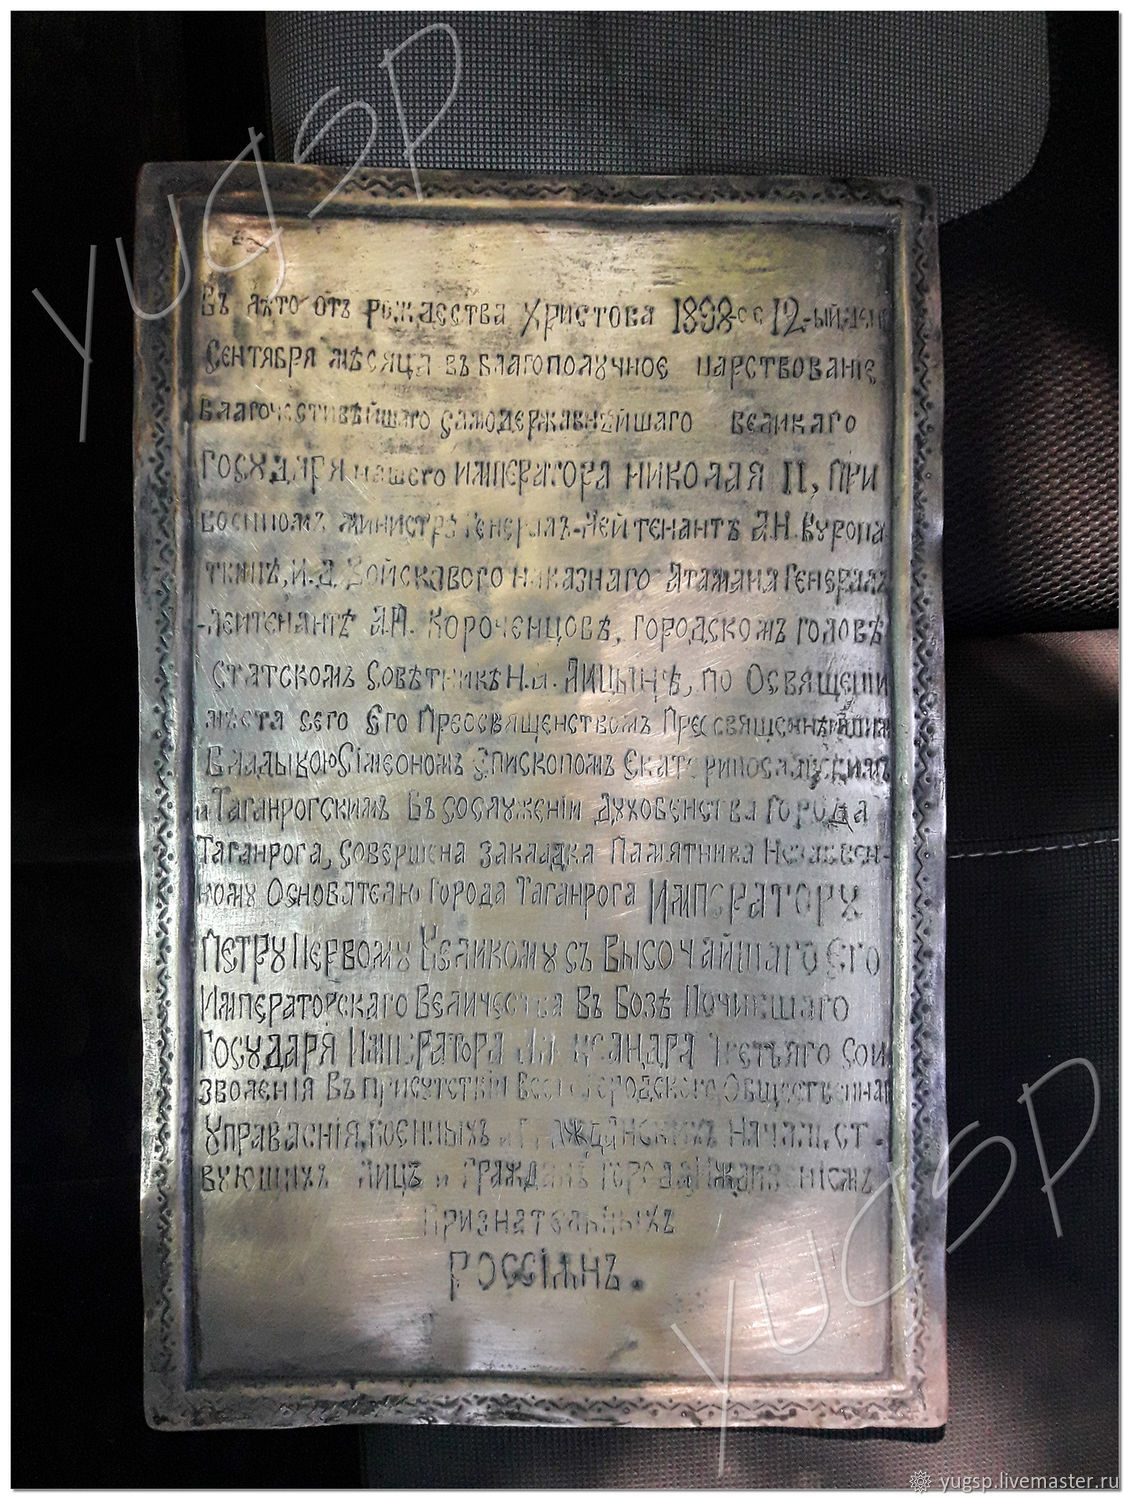 YUGSP
Въ лѣто отъ Рождества Христова 1898-ое 12-ый день
Сентября мѣсяца въ благополучное царствованіе
благочестивѣйшаго самодержавнѣйшаго великаго
Государя нашего Императора Николая II, при
военномъ министрѣ Генералъ-Лейтенантъ А.Н. Куропа
ткинѣ, И.Д. Войскавого наказнаго Атамана Генералъ
-лейтенантѣ А.А. Короченцовѣ, городскомъ головѣ
статскомъ совѣтникѣ Н.И. Лицынѣ, по Освященіи
мѣста сего Его Преосвященствомъ Преосвященнѣйшимъ
Владыкою Сімеономъ Епископомъ Екатеринославскимъ
и Таганрогскимъ въ сослуженіи духовенства города
Таганрога, совершена закладка Памятника Незабвен-
ному Основателю города Таганрога Императору
Петру Первому Великому съ Высочайшаго Его
Императорскаго Величества въ Бозѣ Почившаго
Государя Императора Александра Третьяго сои
зволенія въ присутствіи Всего Городского Общественнаг
Управленія, военныхъ и гражданскихъ началъст-
вующихъ лицъ и гражданъ города
Признательныхъ
Россіянъ.
YUGSP
yugsp.livemaster.ru